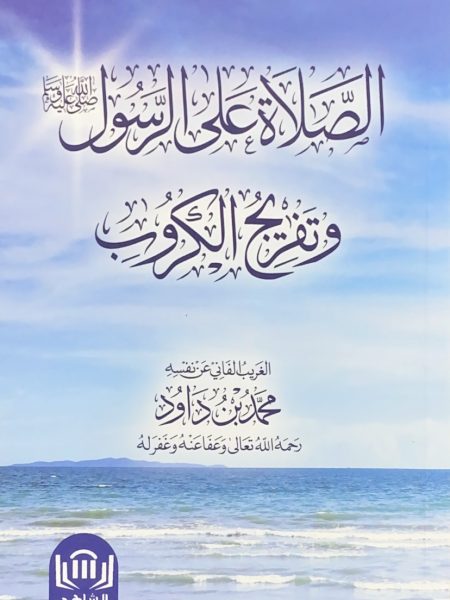 الصَّلَاةُ عَلَى الرَّسُولِ صلى الله عليه وسلم
وَتَفْرِيجُ الكُرُوبِ
الغَرِيبُ الفَانِي عَنْ نَفْسِهِ
مُحَمَّدُ بْنُ دَاوُد
رَحِمَهُ اللهُ تَعَالَى وَعَفَا عَنْهُ وَغَفَرَ لَهُ